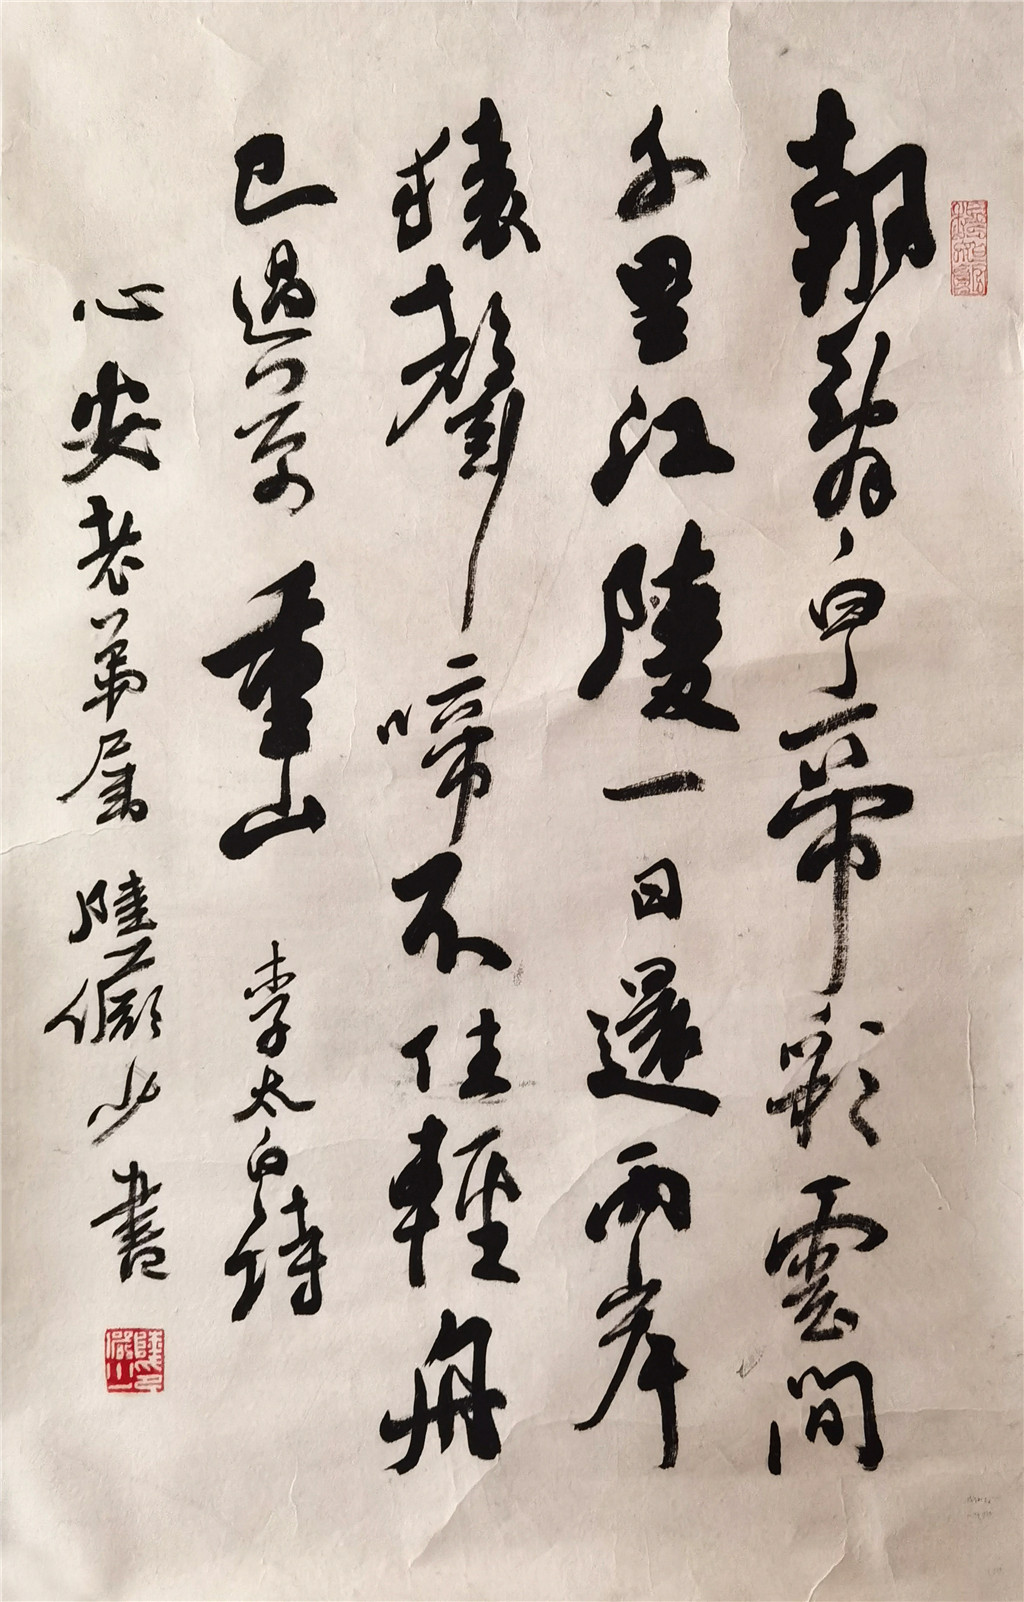 朝辭白帝彩雲間
千里江陵一日還兩岸
猿聲啼不住輕舟
已過萬重山 李太白詩
心安老弟屬 陸儼少書